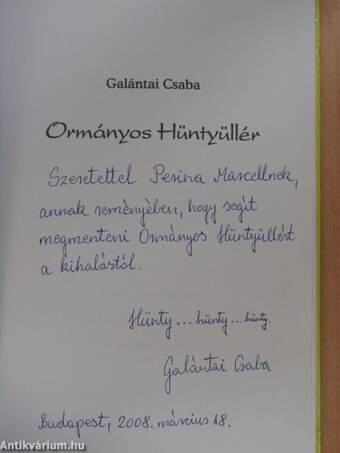 Galántai Csaba
Ormányos Hüntyüllér
Szeretettel Perina Marcellnek,
annak reményében, hogy segít
megmenteni Ormányos Hüntyüllért
a kihalástól.
Hünty... hünty... hünty.
Galántai Csaba
Budapest, 2008. március 18.
Antikvárium.hu